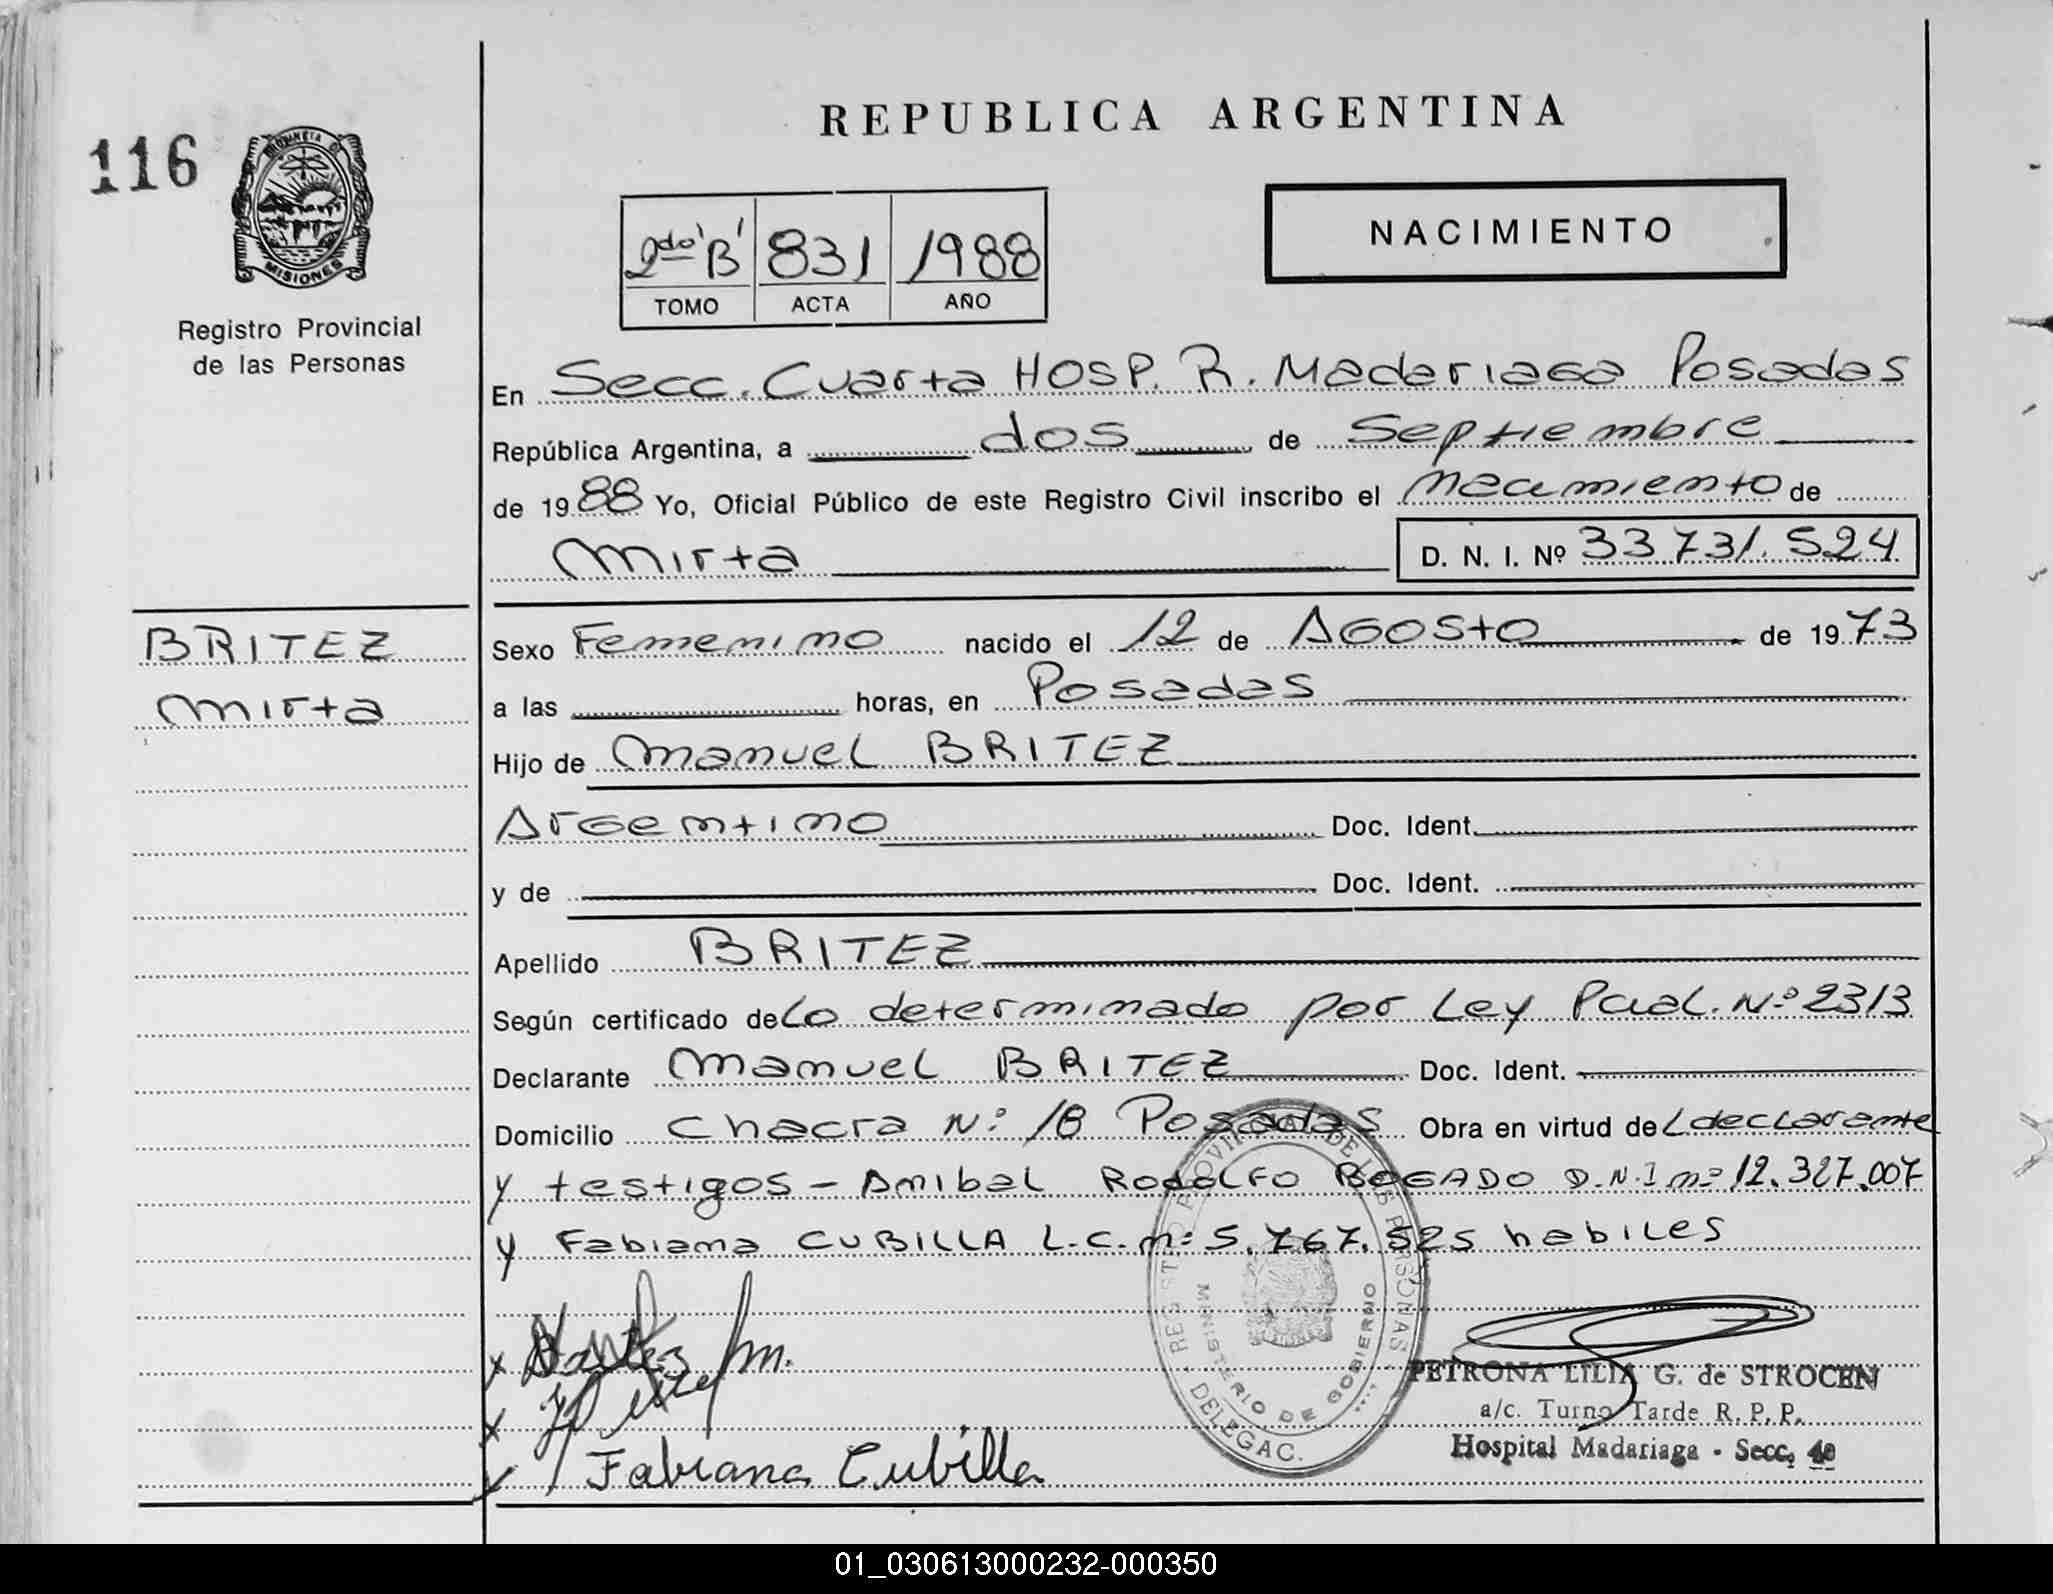 116
PROVINCIA DE
MISIONES
Registro Provincial
de las Personas
REPUBLICA ARGENTINA
2do 'B' 831 1988
TOMO ACTA AÑO
NACIMIENTO
En Secc. Cuarta HOSP. R. Madariaga Posadas
República Argentina, a dos de Septiembre
de 1988 Yo, Oficial Público de este Registro Civil inscribo el Nacimiento de
Mirta D. N. I. Nº 33.731.524
BRITEZ
Mirta
Sexo Femenino nacido el 12 de Agosto de 1973
a las horas, en Posadas
Hijo de Manuel BRITEZ
Argentino Doc. Ident.
y de Doc. Ident.
Apellido BRITEZ
Según certificado de Lo determinado por Ley Pcial. Nº 2313
Declarante Manuel BRITEZ Doc. Ident.
Domicilio Chacra Nº 18 Posadas Obra en virtud del declarante
y testigos - Anibal Rodolfo BOGADO D.N.I nº 12.327.007
y Fabiana CUBILLA L.C. nº 5.767.525 habiles
REGISTRO PROVINCIAL DE LAS PERSONAS
MINISTERIO DE GOBIERNO
DELEGAC.
Fabiana Cubilla
PETRONA LILIA G. de STROCEN
a/c. Turno Tarde R. P. P.
Hospital Madariaga - Secc. 4e
01_030613000232-000350